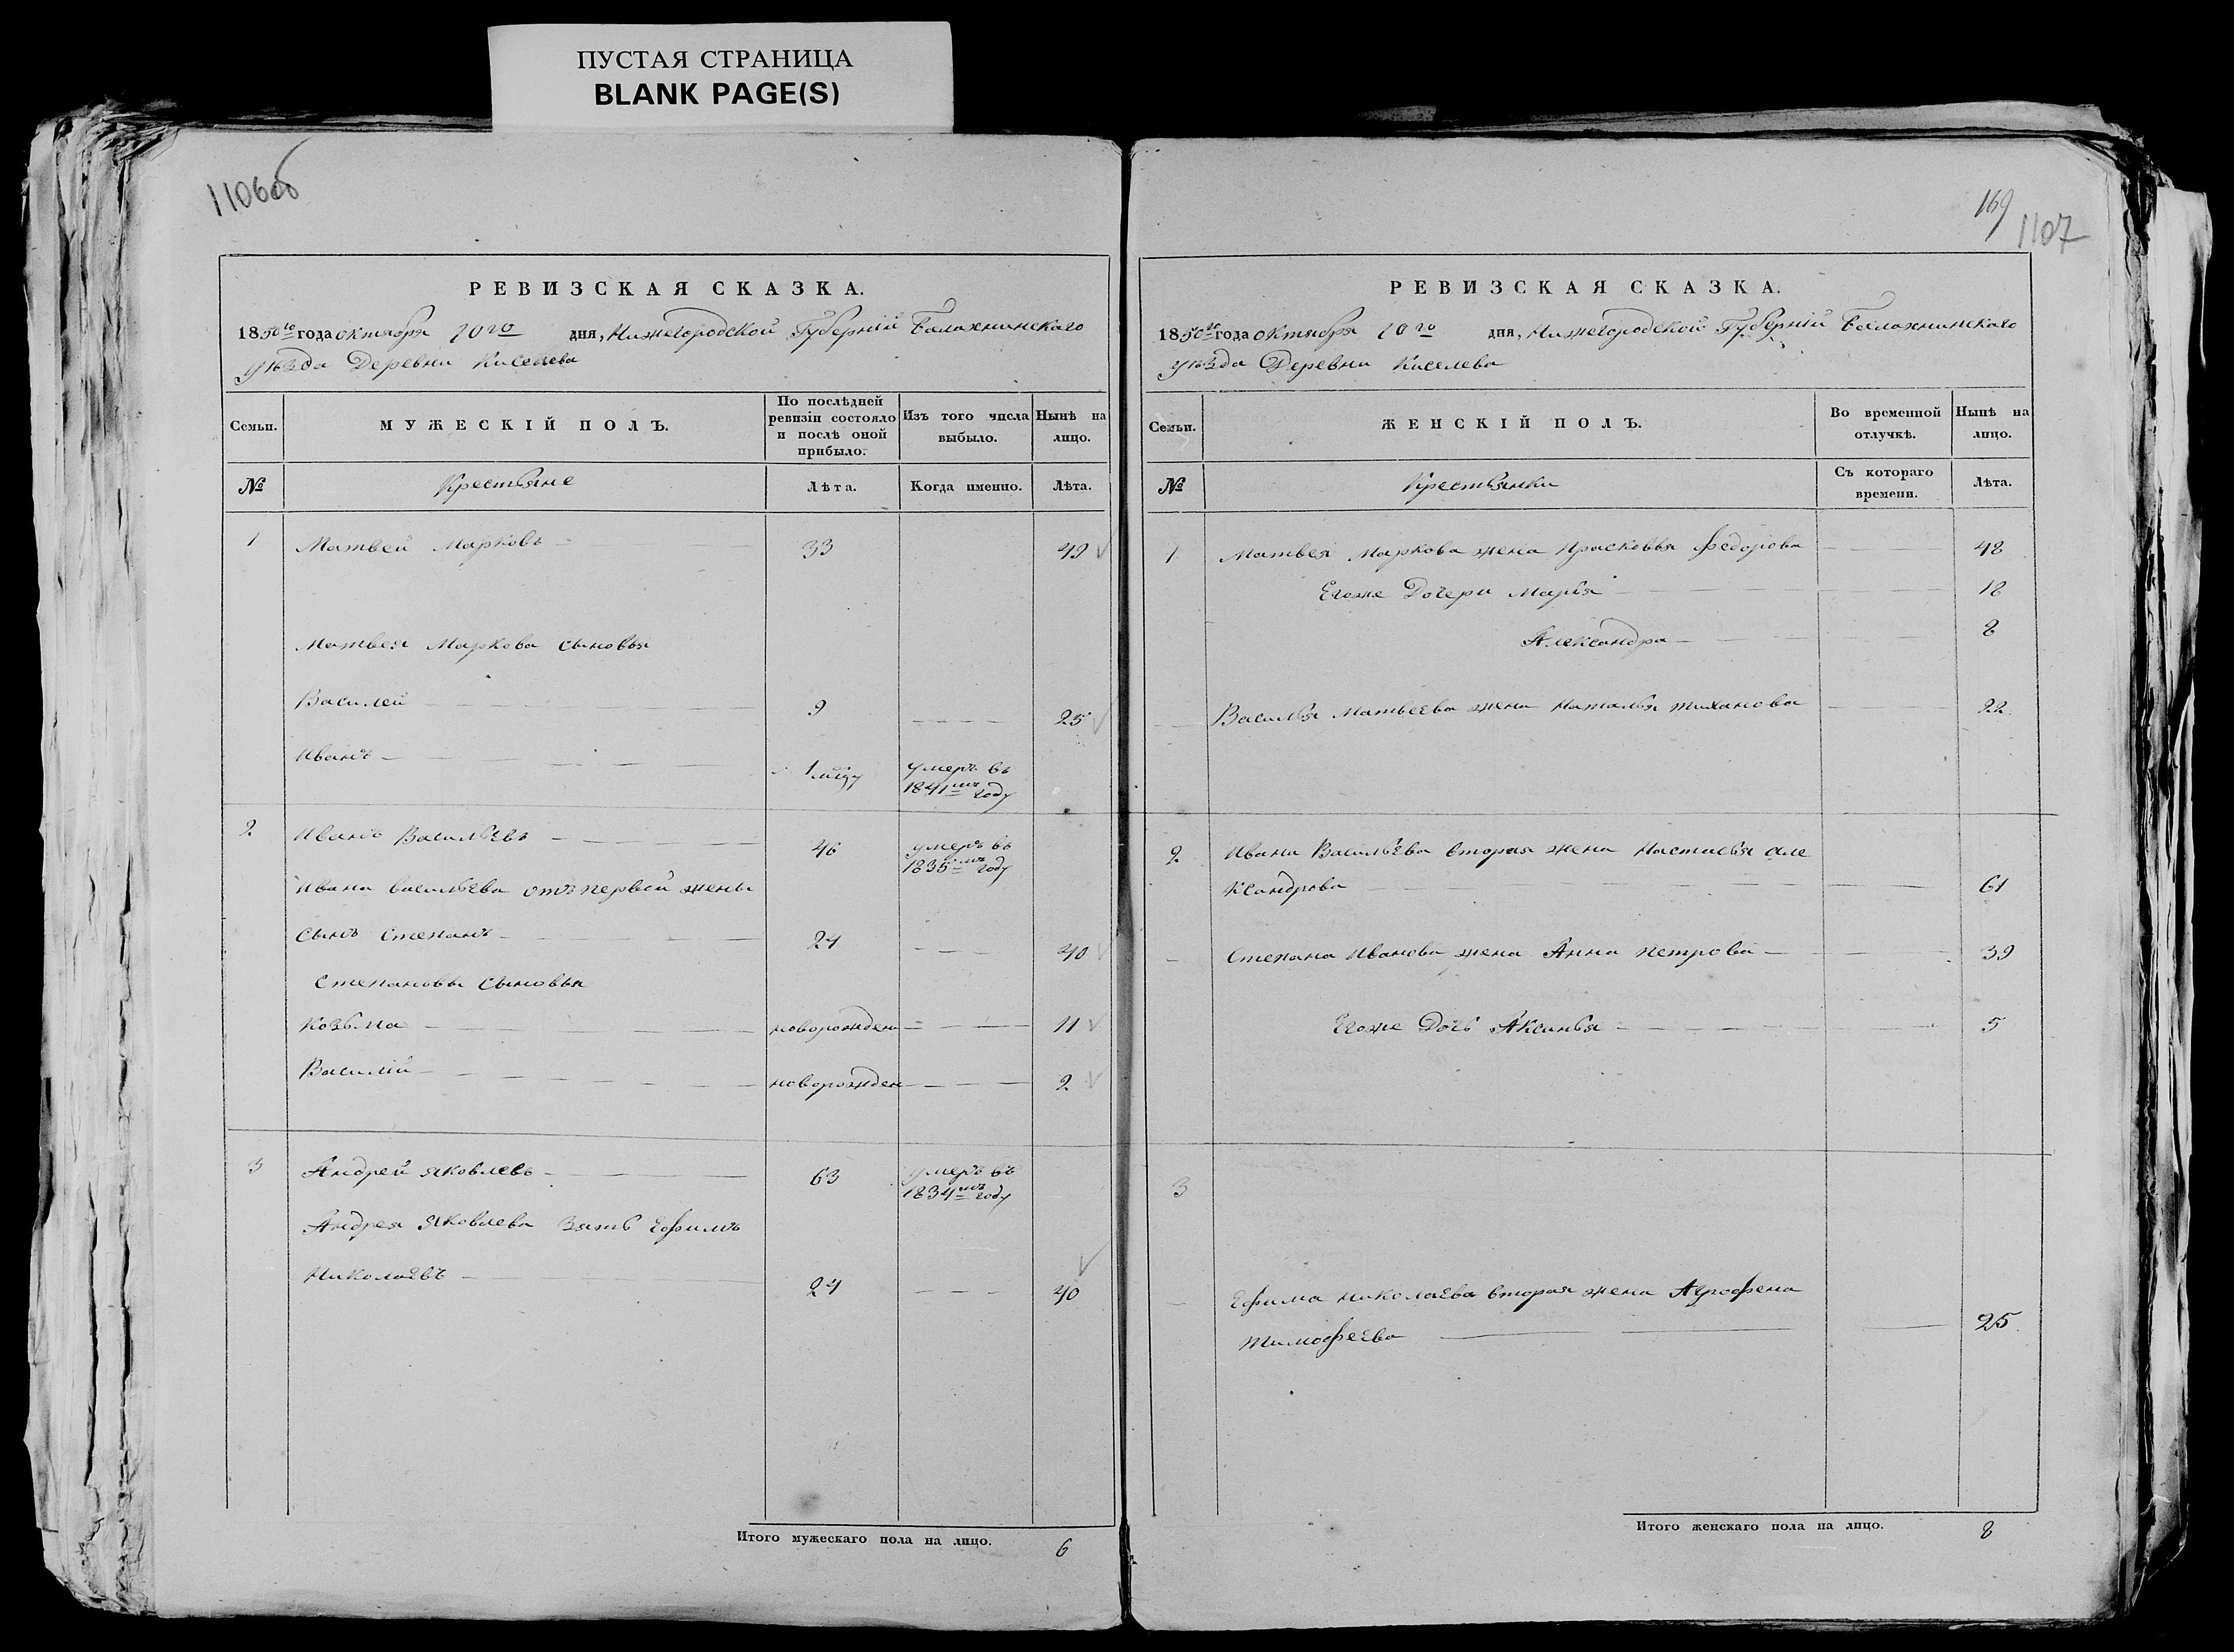 ПУСТАЯ СТРАНИЦА
BLANK PAGE(S)
1106об
РЕВИЗСКАЯ СКАЗКА.
1850го года октября 10го дня, Нижегородской Губерніи Балахнинскаго
уѣзда Деревни Киселева
Семьи.
МУЖЕСКІЙ ПОЛЪ.
По послѣдней ревизіи состояло и послѣ оной прибыло.
Изъ того числа выбыло.
Нынѣ на лицо.
№ Крестьяне Лѣта. Когда именно. Лѣта.
1 Матвей Марковъ 33 49
Матвея Маркова сыновья
Василей 9 25
Иванъ 1 мцу умеръ въ 1841мъ году
2 Иванъ Васильевъ 46 умеръ въ 1835мъ году
Ивана васильева отъ первой жены
сынъ Степанъ 24 40
Степановы сыновья
Козьма новорожден 11
Василій новорожден 2
3 Андрей яковлевъ 63 умеръ въ 1834мъ году
Андрея Яковлева зять Ефимъ
Николаевъ 24 40
Итого мужескаго пола на лицо. 6
169
1107
РЕВИЗСКАЯ СКАЗКА.
1850го года октября 10го дня, Нижегородской Губерніи Балахнинскаго
уѣзда Деревни Киселева
Семьи.
ЖЕНСКІЙ ПОЛЪ.
Во временной отлучкѣ.
Нынѣ на лицо.
№ Крестьянки Съ котораго времени. Лѣта.
1 Матвея Маркова жена Прасковья федорова 48
Егоже Дочери Марья 18
Александра 8
Василья Матвеева жена Наталья тиханова 22
2 Ивана Васильева вторая жена Настасья але
ксандрова 61
Степана Иванова жена Анна петрова 39
Егоже Дочь Аксинья 5
3
Ефима николаева вторая жена Аграфена
тимофеева 25
Итого женскаго пола на лицо. 8